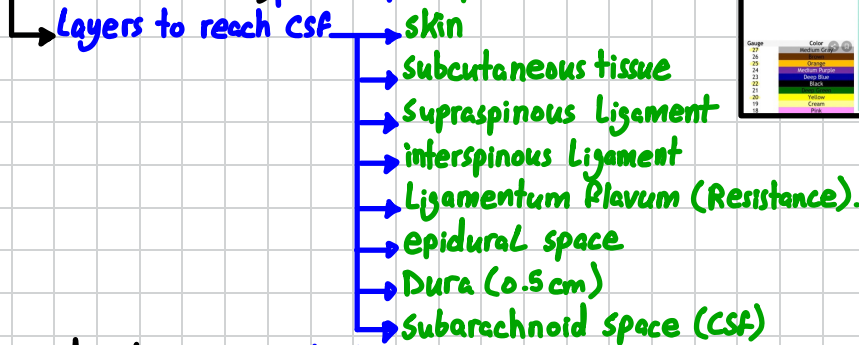 Layers to reach CSF
Skin
Subcutaneous tissue
Supraspinous Ligament
interspinous Ligament
Ligamentum Flavum (Resistance).
epidural space
Dura (0.5cm)
Subarachnoid space (CSF)
Gauge Color
27 Medium Gray
26 Brown
25 Orange
24 Medium Purple
23 Deep Blue
22 Black
21
20 Yellow
19 Cream
18 Pink